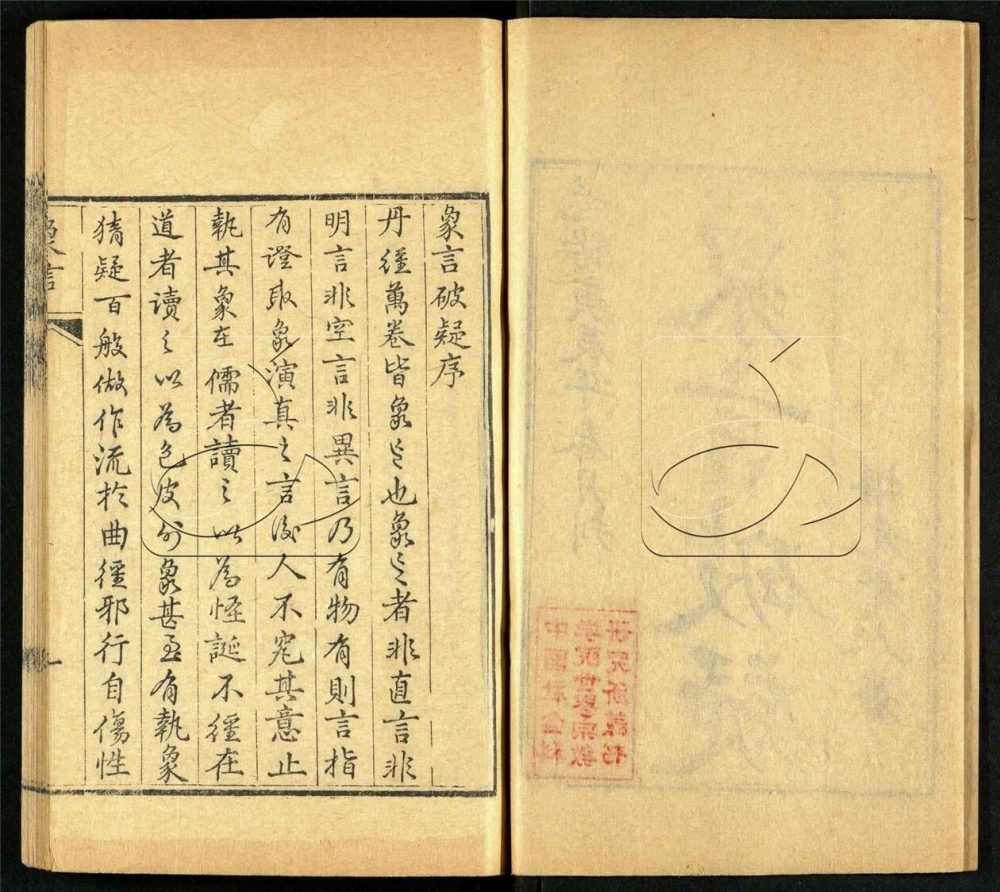 象言破疑序
丹經萬卷皆象言也象言者非直言非
明言非空言非異言乃有物有則言指
有證取象演真之言後人不究其意止
執其象在儒者讀之以為怪誕不經在
道者讀之以為色皮外象甚至有執象
猜疑百般做作流於曲徑邪行自傷性
中国社会科
学院世界宗教
研究所藏书